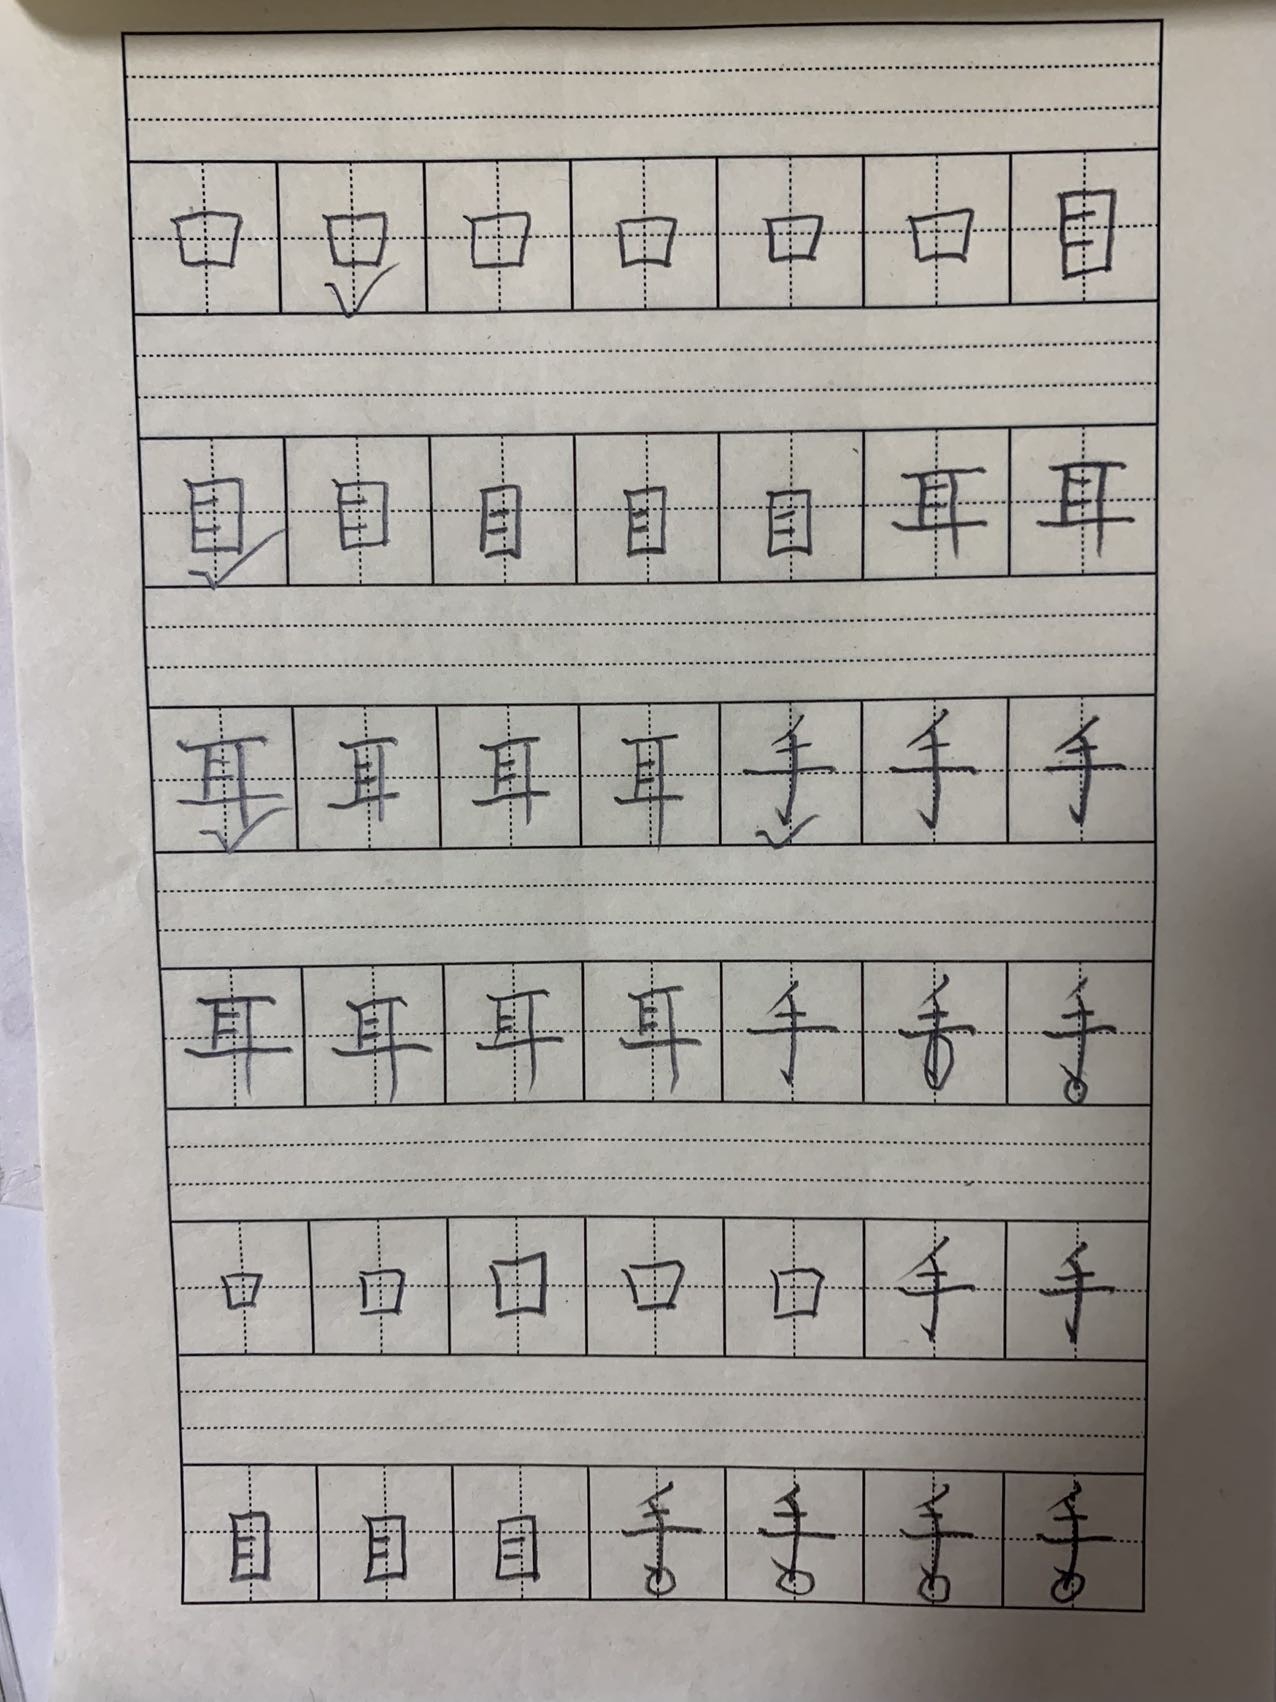 口口口口口口目
目目目目目耳耳
耳耳耳耳手手手
耳耳耳耳手手手
口口口口口手手
目目目手手手手